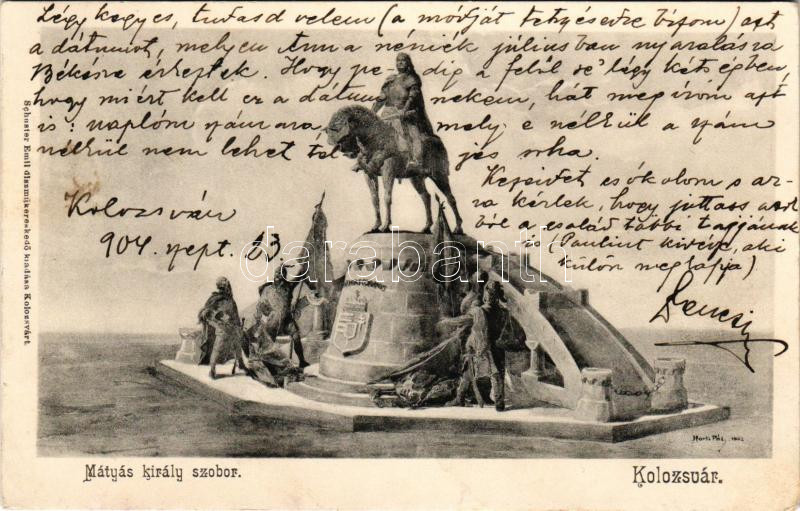 Légy kegyes, tudasd velem (a módját tetszésedre bízom) azt
a dátumot, melyen Anna a néniék júliusban nyaralásra
Békésre érkeztek. Hogy pedig a felől se' légy kétségben,
hogy miért kell ez a dátum nekem, hát megirom azt
is: naplóm számára, mely e nélkül a szám
nélkül nem lehet teljes soha.
Kezeidet csókolom s arra
kérlek, hogy juttass
ból a család többi tagjának
is (Paulint kivéve, aki
külön megkapja)
Kolozsvár
904. szept. 23.
Schuster Emil díszműkereskedő kiadása Kolozsvárt
darabanth
Mátyás király szobor.
Kolozsvár.